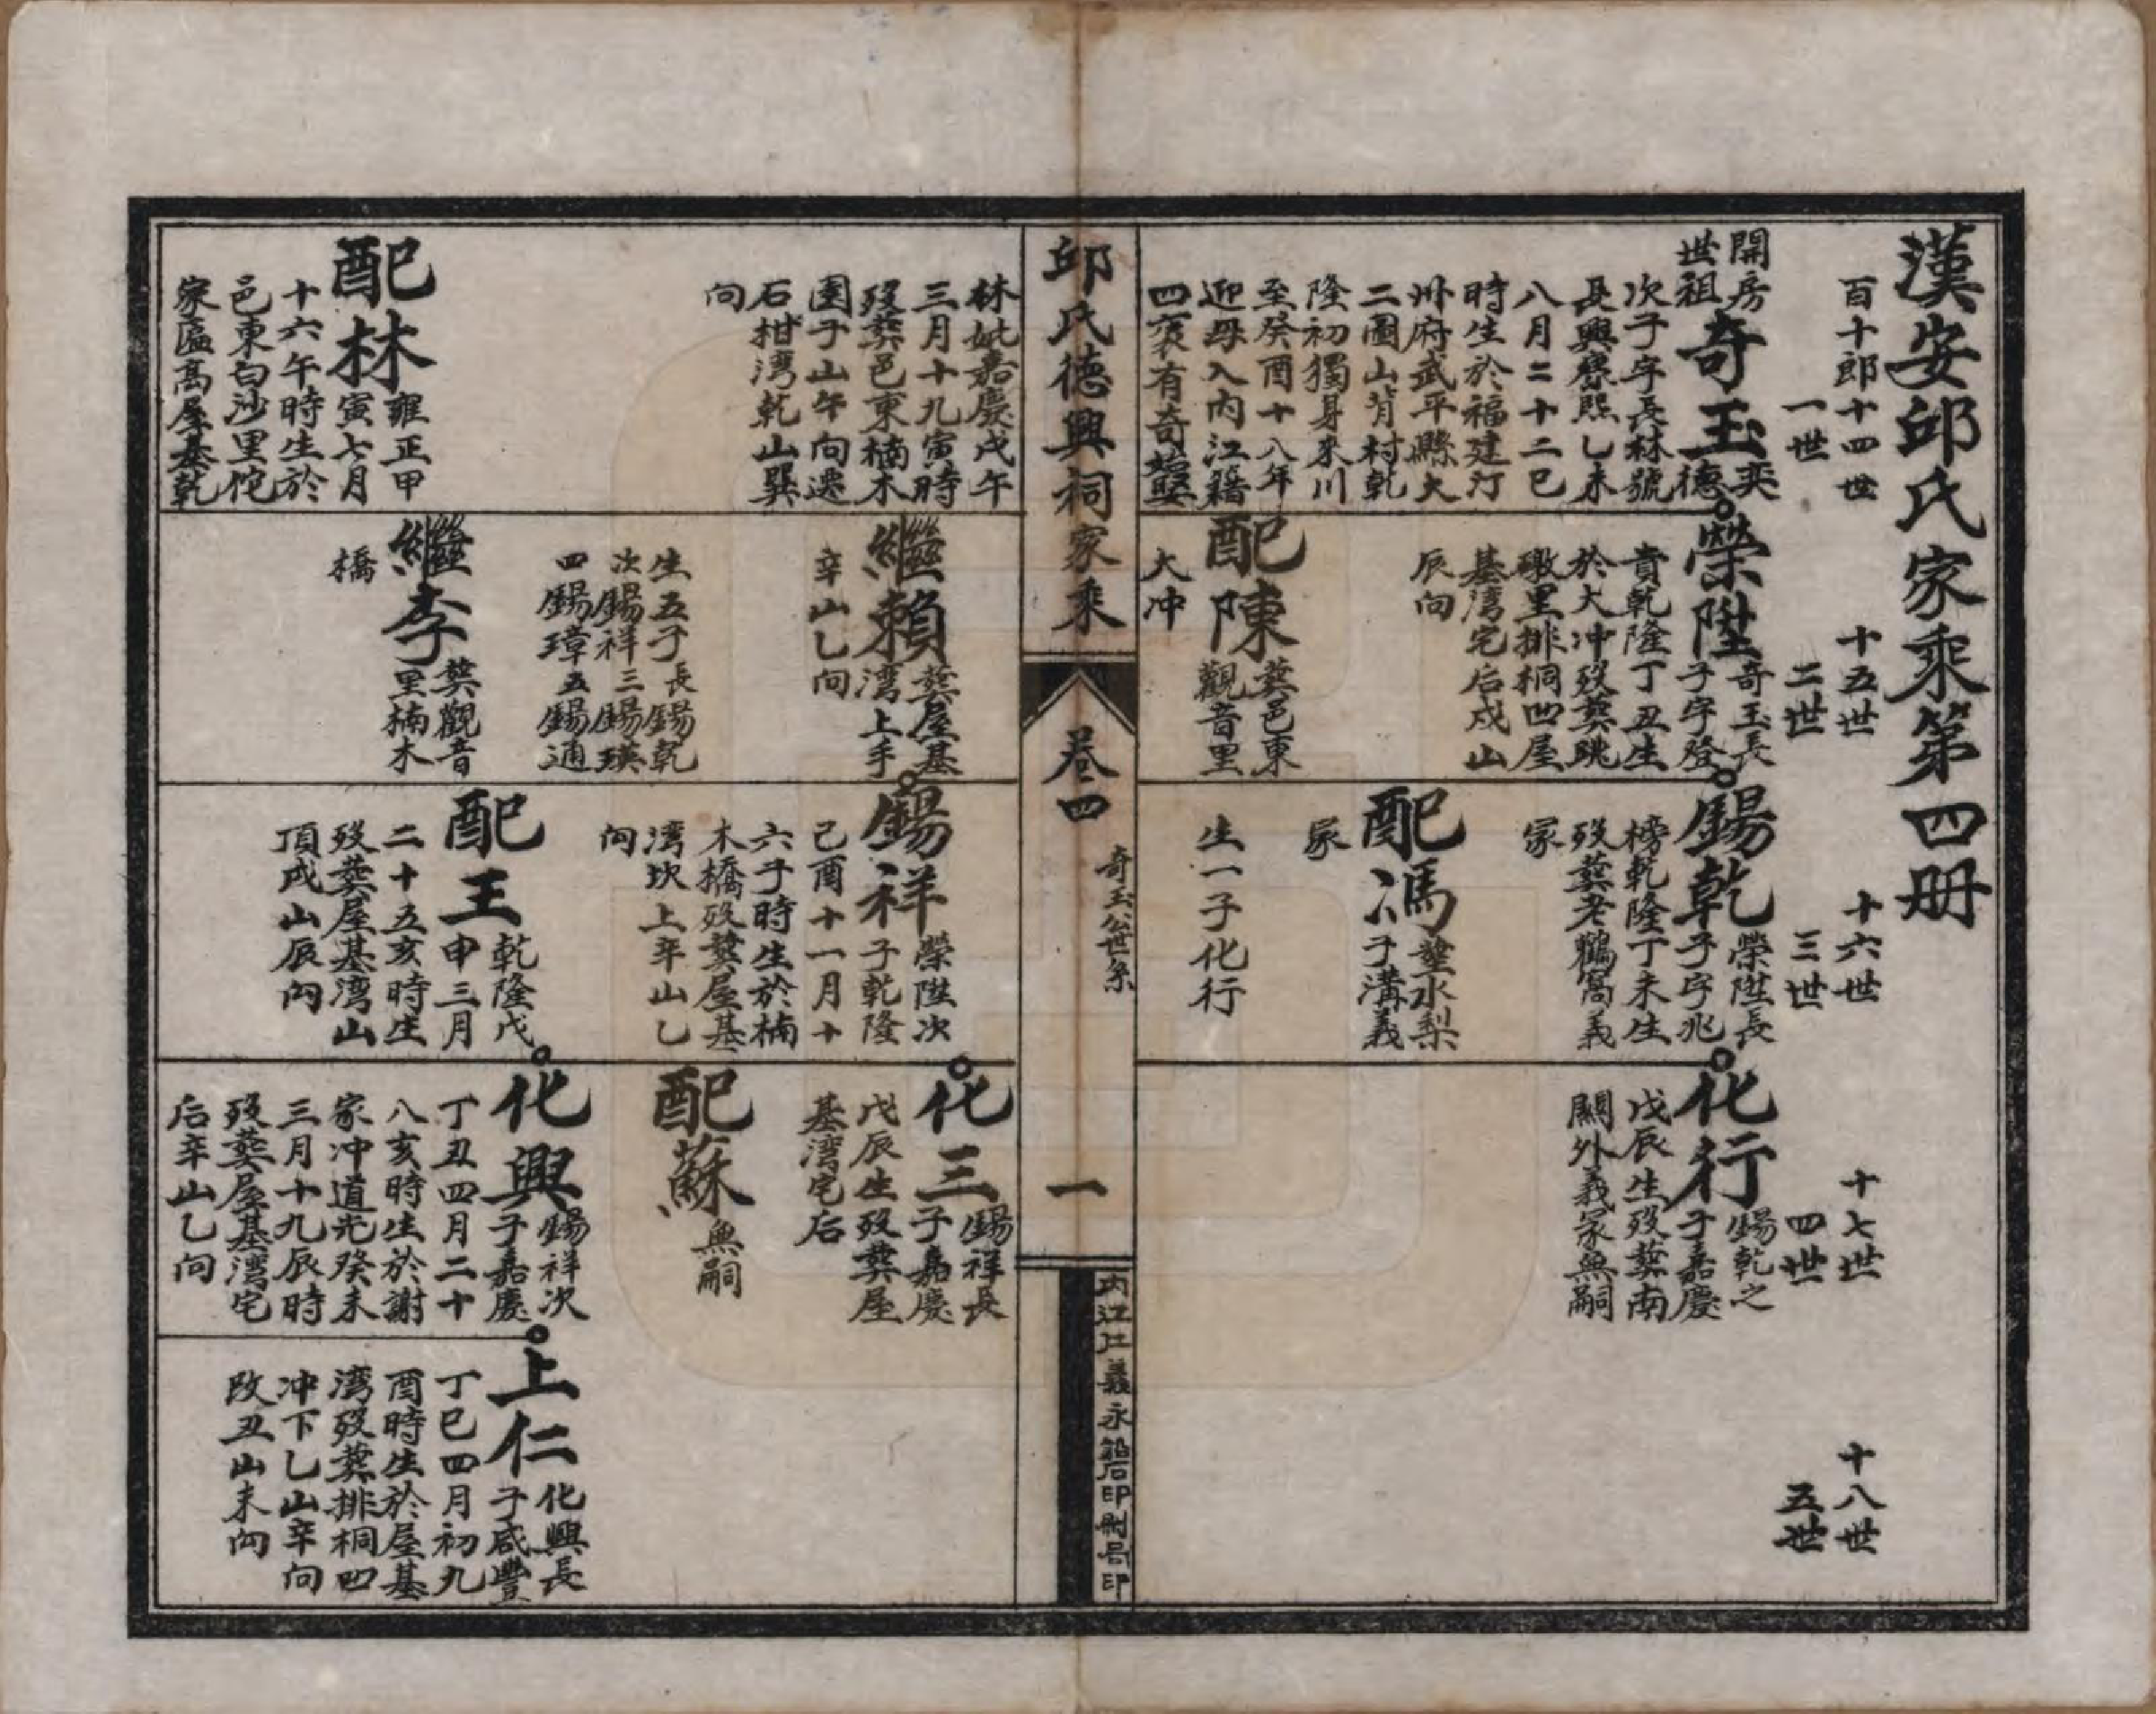 漢安邱氏家乘第四册
百十郎十四世
一世
十五世
二世
十六世
三世
十七世
四世
十八世
五世
開房
世祖
奇玉
奕
德
次子字長林號
長興寮熙乙未
八月二十二巳
時生於福建汀
州府武平縣大
二圖山背村乾
隆初獨身來川
至癸酉十八年
迎母入内江籍
四衺有奇始娶
榮陞
奇玉長
子字登
貴乾隆丁丑生
於大冲殁葬跳
礅里排桐凹屋
基湾宅后戍山
辰向
配陳
葬邑東
觀音里
大冲
錫乾
榮陞長
子字兆
榜乾隆丁未生
殁葬老鸛窩義
冢
配馮
葬水梨
子溝義
冢
生一子化行
化行
錫乾之
子嘉慶
戊辰生殁葬南
關外義冢無嗣
邱氏德興祠家乘
卷四
奇玉公世系
一
内江仁義永鉛石印刷号印
林妣嘉慶戊午
三月十九寅時
殁葬邑東楠木
園子山午向遷
石柑湾乾山巽
向
配林
雍正甲
寅七月
十六午時生於
邑東白沙里侘
家匾高屋基乾
繼賴
葬屋基
湾上手
辛山乙向
生五子長錫乾
次錫祥三錫瑛
四錫璋五錫通
繼李
葬觀音
里楠木
橋
錫祥
榮陞次
子乾隆
己酉十一月十
六子時生於楠
木橋殁葬屋基
湾坎上辛山乙
向
配王
乾隆戊
申三月
二十五亥時生
殁葬屋基湾山
頂戍山辰向
化三
錫祥長
子嘉慶
戊辰生殁葬屋
基湾宅后
配蘇
無嗣
化興
錫祥次
子嘉慶
丁丑四月二十
八亥時生於謝
家冲道光癸未
三月十九辰時
殁葬屋基湾宅
后辛山乙向
上仁
化興長
子咸豐
丁巳四月初九
酉時生於屋基
湾殁葬排桐凹
冲下乙山辛向
改丑山未向